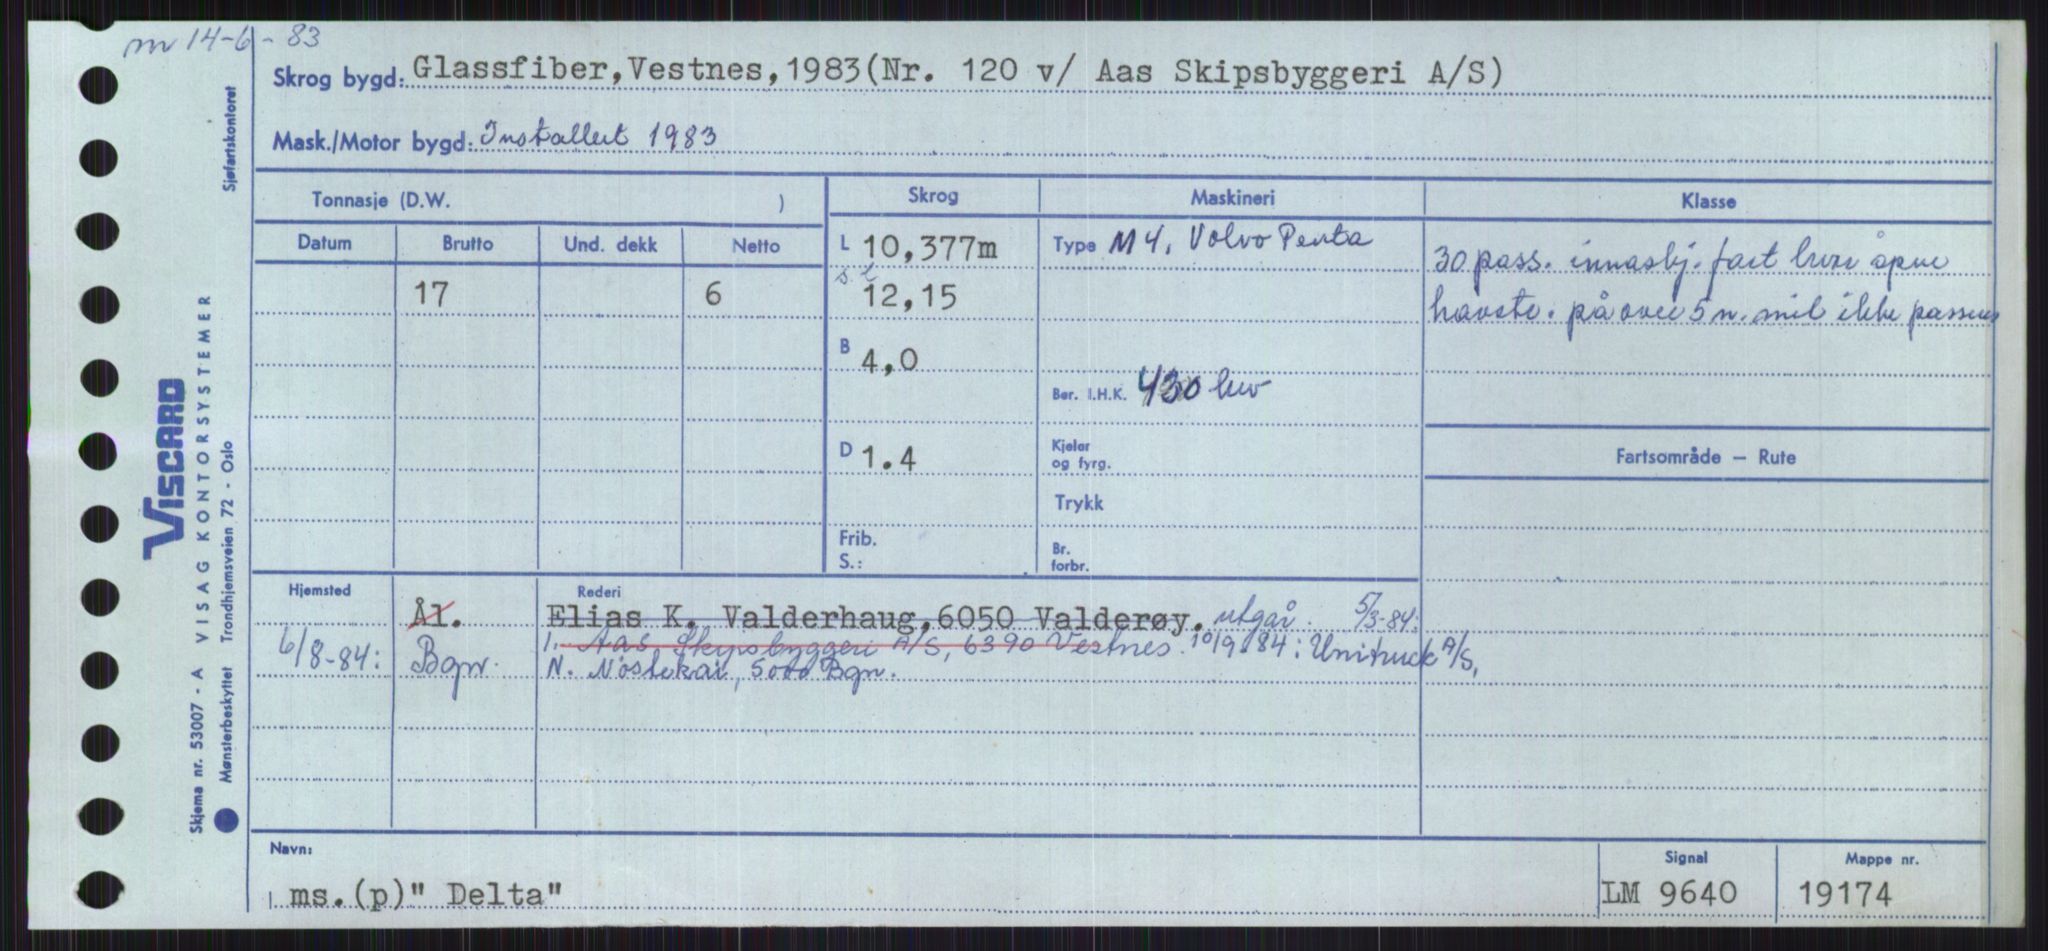 m 14-6-83
Skrog bygd: Glassfiber, Vestnes, 1983 (Nr. 120 v/ Aas Skipsbyggeri A/S)
Mask./Motor bygd: Installert 1983
Tonnasje (D.W. )
Skrog
Maskineri
Klasse
Datum Brutto Und. dekk Netto
L 10,377m
Type M 4. Volvo Penta
30 pass. innasbj. fart hvori åpne
havstr. på over 5 n. mil ikke passeres
17 6
s.l 12,15
B 4,0
Ber. I.H.K. 430 hw
D 1.4
Kjeler
og fyrg.
Fartsområde – Rute
Trykk
Frib.
S.:
Br.
forbr.
Hjemsted
Rederi
Ål. Elias K. Valderhaug, 6050 Valderøy. utgår. 5/3-84:
6/8-84: Bgn. 1. Aas Skipsbyggeri A/S, 6390 Vestnes. 10/9-84: Unitruck A/S,
N. Nøstekai, 5000 Bgn.
Navn:
ms.(p)" Delta"
Signal
LM 9640
Mappe nr.
19174
VISCARD
VISAG KONTORSYSTEMER
Skjema nr. 53007 - A
Mønsterbeskyttet Trondhjemsveien 72 - Oslo
Sjøfartskontoret